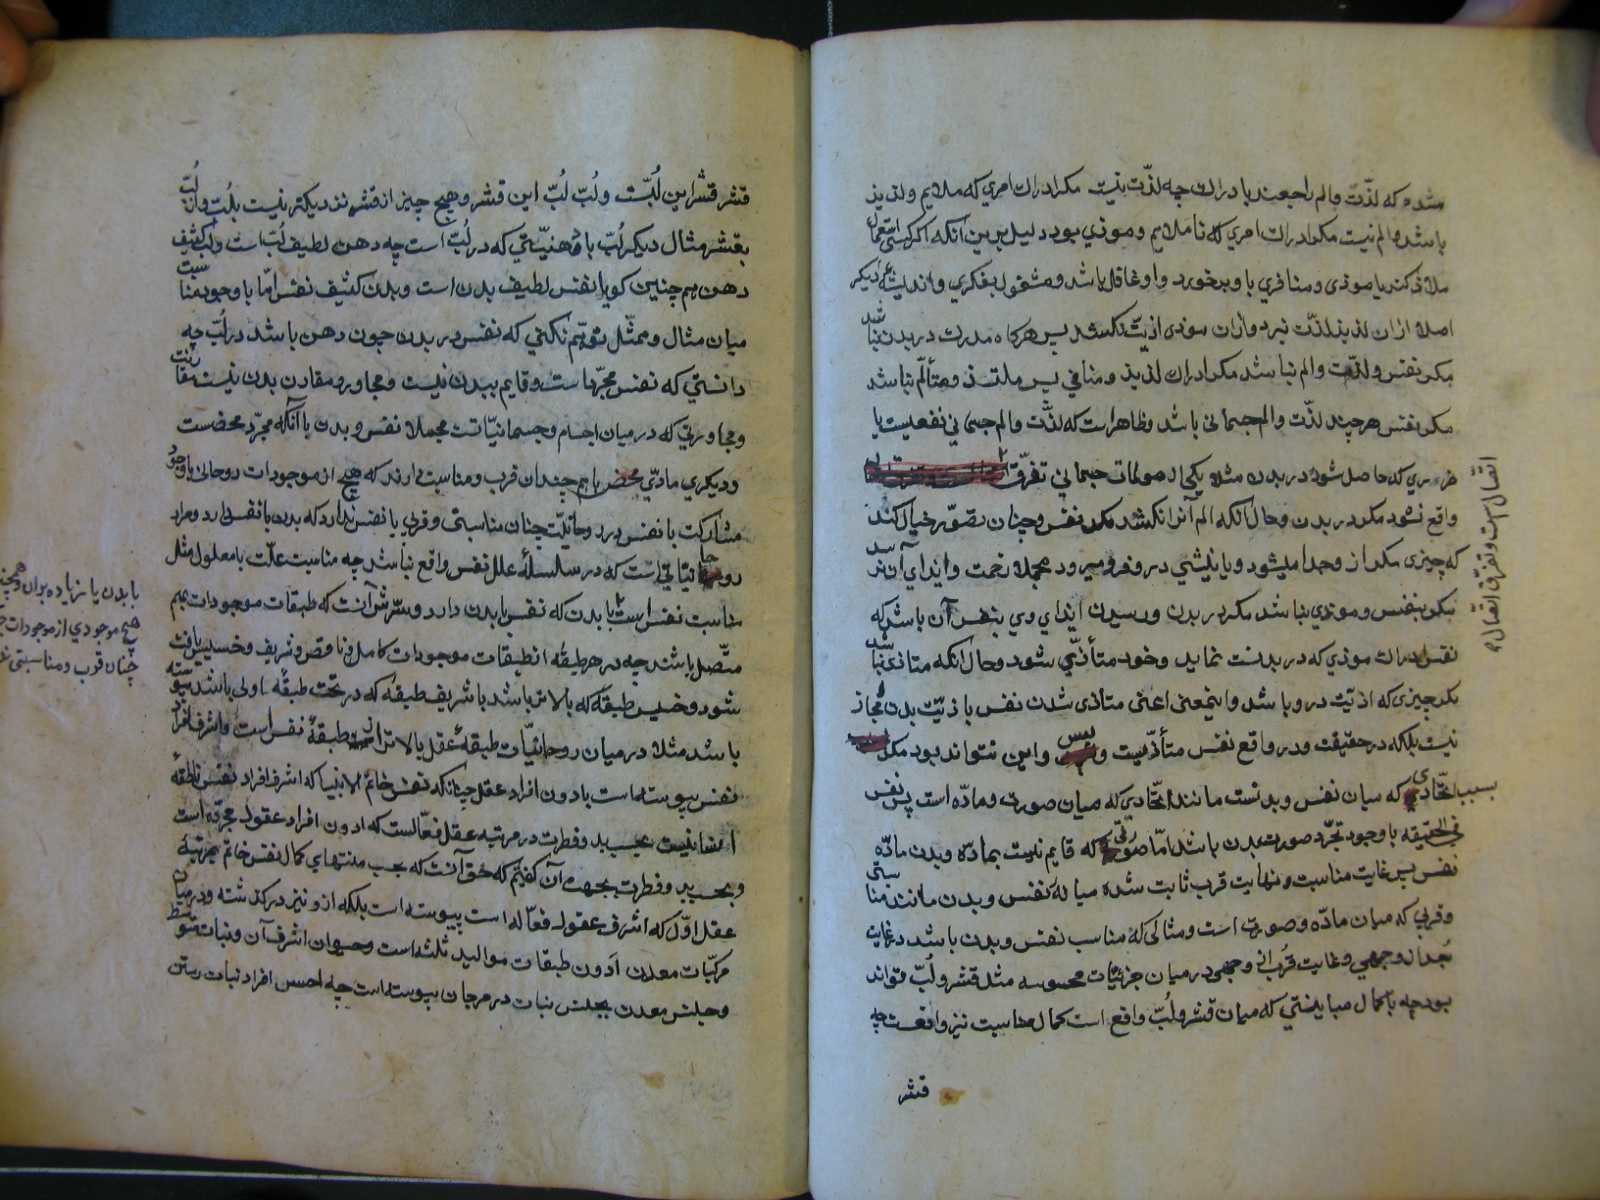 شده که لذّت والم راجعند بادراک چه لذّت نیست مکر ادراک امری که ملایم ولذیذ
باشد والم نیست مکر ادراک امری که ناملایم وموذی بود دلیل برین آنکه اکر کسی استعمال
ملاذ کند یا موذی ومنافری باو برخورد واو غافل باشد ومشغول بفکری واندیشهٔ دیکر
اصلا ازان لذیذ لذّت نبرد وازان موذی اذیّت نکشد پس هرکاه مدرک در بدن نباشد
مکر نفس ولذّت والم نباشد مکر ادراک لذیذ ومنافی پس ملتذ ومتألّم نباشد
مکر نفس هرچند لذّت والم جسمانی باشد وظاهر است که لذّت والم جسمانی نفعیست یا
ضرری که حاصل شود در بدن مثلا یکی از مولمات جسمانی تفرّق
اتّصال است وتفرّق اتّصال
واقع نشود مکر در بدن وحال آنکه الم آنرا نکشد مکر نفس وچنان تصوّر خیال کند
که چیزی مکر از وجدا میشود ویا نیشی در وفرو میرود مجملا زخمت وایذای آن نرسد
مکر بنفس وموذی نباشد مکر در بدن ورسیدن ایذای وی بنفس آن باشد که
نفس ادراک موذی که در بدنست نماید وخود متأذّی شود وحال آنکه متاذی نباشد
مکر چیزی که اذیّت درو باشد واینمعنی اعنی متاذی شدن نفس باذیّت بدن مجاز
نیست بلکه در حقیقت ودر واقع نفس متأذّیست وبس واین نتواند بود مکر
بسبب اتّحادی که میان نفس وبدنست مانند اتّحادی که میان صورت ومادّه است پس نفس
فی الحقیقه باوجود تجرّد صورت بدن باشد امّا صورتی که قایم نیست بمادّه وبدن مادّه
نفس پس غایت مناسبت ونهایت قرب ثابت شده میانهٔ نفس وبدن مانند مناسبتی
وقربی که میان مادّه وصورت است ومثالی که مناسب نفس وبدن باشد در غایت
بُعد از وجهی وغایت قُرب از وجهی در میان جزئیّات محسوسه مثل قشر ولُبّ تواند
بود چه باکمال مباینتی که میان قشر ولُبّ واقع است کمال مناسبت نیز واقعست چه
قشر
قشر قشر این لُبّست ولُبّ لُبّ این قشر وهیچ چیز از قشر نزدیکتر نیست بلُبّ واز لُبّ
بقشر مثال دیکر لُبّ با دُهنیّتی که در لُبّ است چه دهن لطیف لُبّ است ولُبّ کثیف
دهن همچنین کویا نفس لطیف بدن است وبدن کثیف نفس امّا باوجود مناسبت
میان مثال وممثّل توهّم نکنی که نفس در بدن چون دهن باشد در لُبّ چه
دانستی که نفس مجرّد است وقایم ببدن نیست ومجاور ومقارن بدن نیست مقارنت
ومجاورتی که در میان اجسام وجسمانیّاتست مجملا نفس وبدن باآنکه مجرّد محضست
ودیکری مادّی محض باهم چندان قرب ومناسبت دارند که هیچ از موجودات روحانی باوجود
مشارکت با نفس در روحانیّت چنان مناسبتی وقربی با نفس ندارد که بدن با نفس دارد ومراد
روحانیّاتی است که در سلسلهٔ علل نفس واقع نباشد چه مناسبت علّت با معلول مثل
مناسبت نفس است با بدن که نفس با بدن دارد وسرّش آنست که طبقات موجودات بهم
با بدن یا زیاده بران وهمچنین
هیچ موجودی از موجودات
چنان قرب ومناسبتی
متّصل باشند چه در هر طبقهٔ از طبقات موجودات کامل وناقص وشریف وخسیس یافت
شود وخسیس طبقهٔ که بالاتر باشد با شریف طبقهٔ که در تحت طبقهٔ اولی باشد پیوسته
باشد مثلا در میان روحانیّات طبقهٔ عقل بالاتر از طبقهٔ نفس است واشرف افراد
نفس پیوسته است با دون افراد عقل چنانکه نفس خاتم الانبیا که اشرف افراد نفس ناطقهٔ
انسانیست بحسب بدو فطرت در مرتبه عقل فعّالست که ادون افراد عقول مجرّده است
وبحسب بدو فطرت بجهت آن کفتیم که حق آنست که بحسب منتهای کمال نفس خاتم بمرتبهٔ
عقل اوّل که اشرف عقول فعّاله است پیوسته است بلکه ازو نیز در کذشته ودر میان
مرکّبات معدن اَدون طبقات موالید ثلثه است وحیوان اشرف آن ونبات متوسّط
وجنس معدن بجنس نبات در مرجان پیوسته است چه احسن افراد نبات رستن